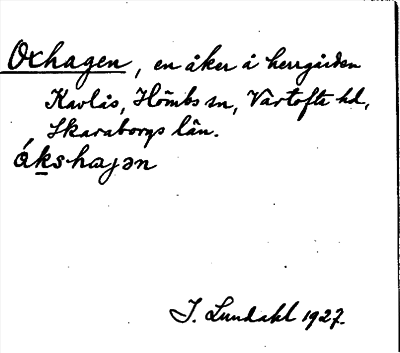 Oxhagen, en åker å herrgården
Kavlås, Hömbs sn, Vartofta hd,
Skaraborgs län.
ákshaɟən
I. Lundahl 1927.